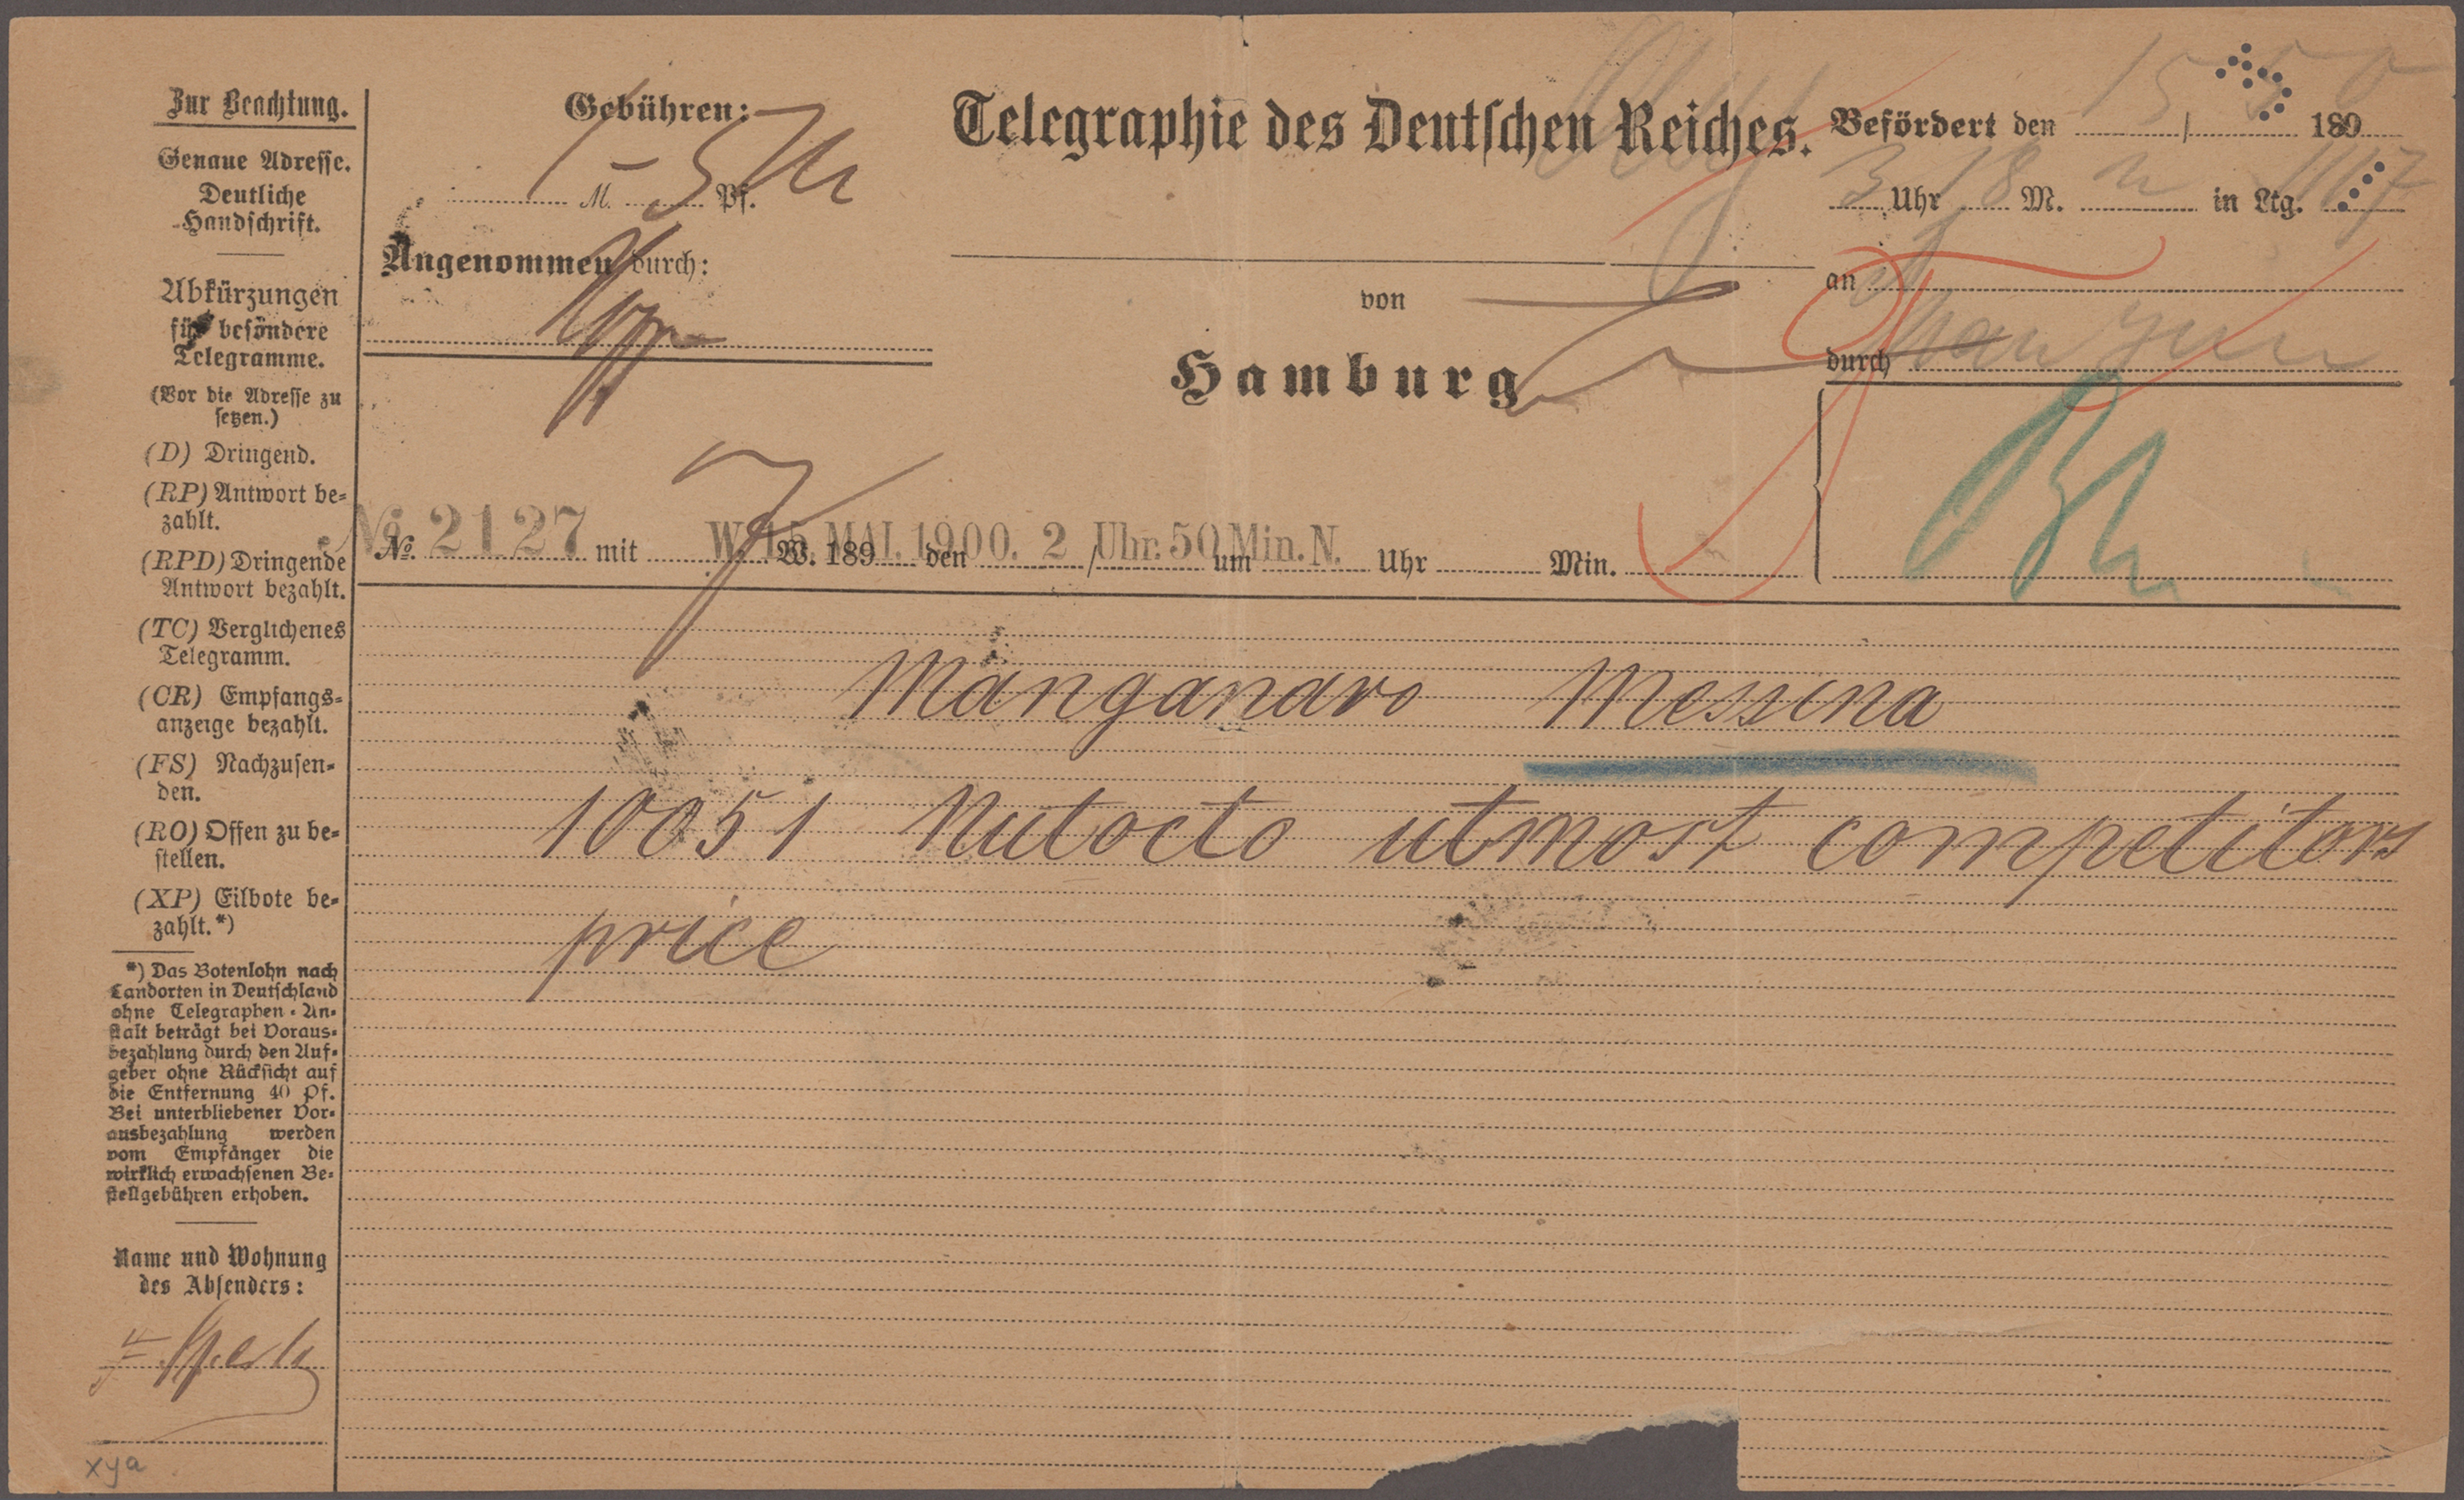 Zur Beachtung.
Genaue Adresse.
Deutliche
Handschrift.
Abkürzungen
für besondere
Telegramme.
(Vor die Adresse zu
setzen.)
(D) Dringend.
(RP) Antwort be-
zahlt.
(RPD) Dringende
Antwort bezahlt.
(TC) Verglichenes
Telegramm.
(CR) Empfangs-
anzeige bezahlt.
(FS) Nachzusen-
den.
(RO) Offen zu be-
stellen.
(XP) Eilbote be-
zahlt.*)
*) Das Botenlohn nach
Landorten in Deutschland
ohne Telegraphen-An-
stalt beträgt bei Voraus-
bezahlung durch den Auf-
geber ohne Rücksicht auf
die Entfernung 40 Pf.
Bei unterbliebener Vor-
ausbezahlung werden
vom Empfänger die
wirklich erwachsenen Be-
stellgebühren erhoben.
Name und Wohnung
des Absenders:
xya
Gebühren:
1 M. 5 Pf.
Angenommen durch:
Telegraphie des Deutschen Reiches.
von
Hamburg
Befördert den 15/5 1890
3 Uhr 18 M. in Ltg. 117
an
durch
No. 2127 mit 7 W. 189 den / um Uhr Min.
W. 15. MAI. 1900. 2 Uhr. 50 Min. N.
Manganaro Messina
10051 Nutocto utmost competitors
price